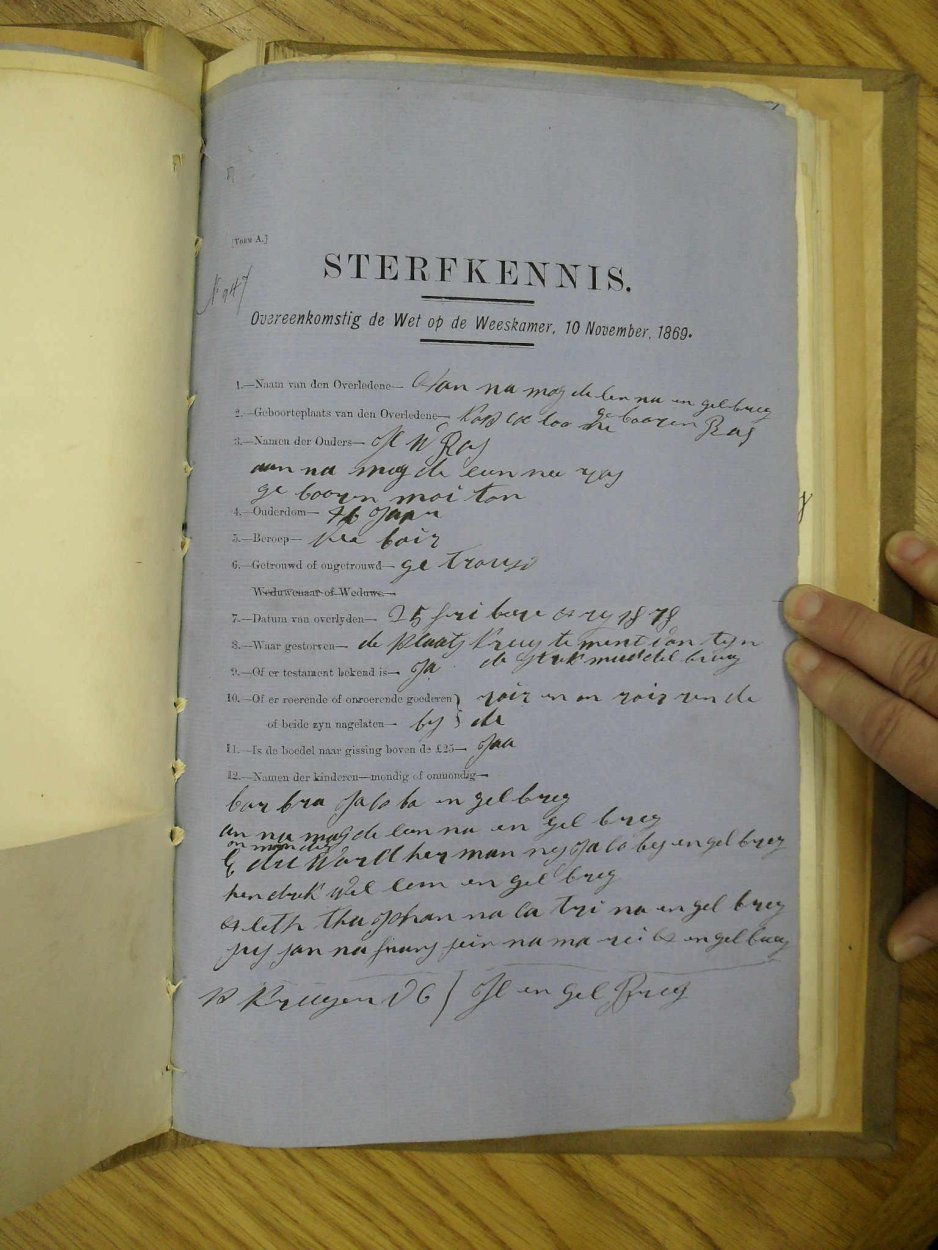 [VORM A.]
No 947
STERFKENNIS.
Overeenkomstig de Wet op de Weeskamer, 10 November, 1869.
1.—Naam van den Overledene— an na mag de len na en gel breg
2.—Geboorteplaats van den Overledene— ge booren Ras
3.—Namen der Ouders— H W Ras
an na mag de leen na ras
ge booren moi ton
4.—Ouderdom— 46 Jaar
5.—Beroep— vee boir
6.—Getrouwd of ongetrouwd— ge trouwd
Weduwenaar of Weduwe.—
7.—Datum van overlyden— 25 1878
8.—Waar gestorven— de plaats
9.—Of er testament bekend is— Ja de middel burg
10.—Of er roerende of onroerende goederen} roir en on roir ren de
of beide zyn nagelaten— by } de
11.—Is de boedel naar gissing boven de £25— Jaa
12.—Namen der kinderen—mondig of onmondig—
bar bra Ja co ba en gel breg
an na mag de leen na en gel breg
on mon dig
her man nes Ja co bes en gel breg
hen drik wil lem en gel breg
Johan na ca tri na en gel breg
en gel breg
H en gel Breg